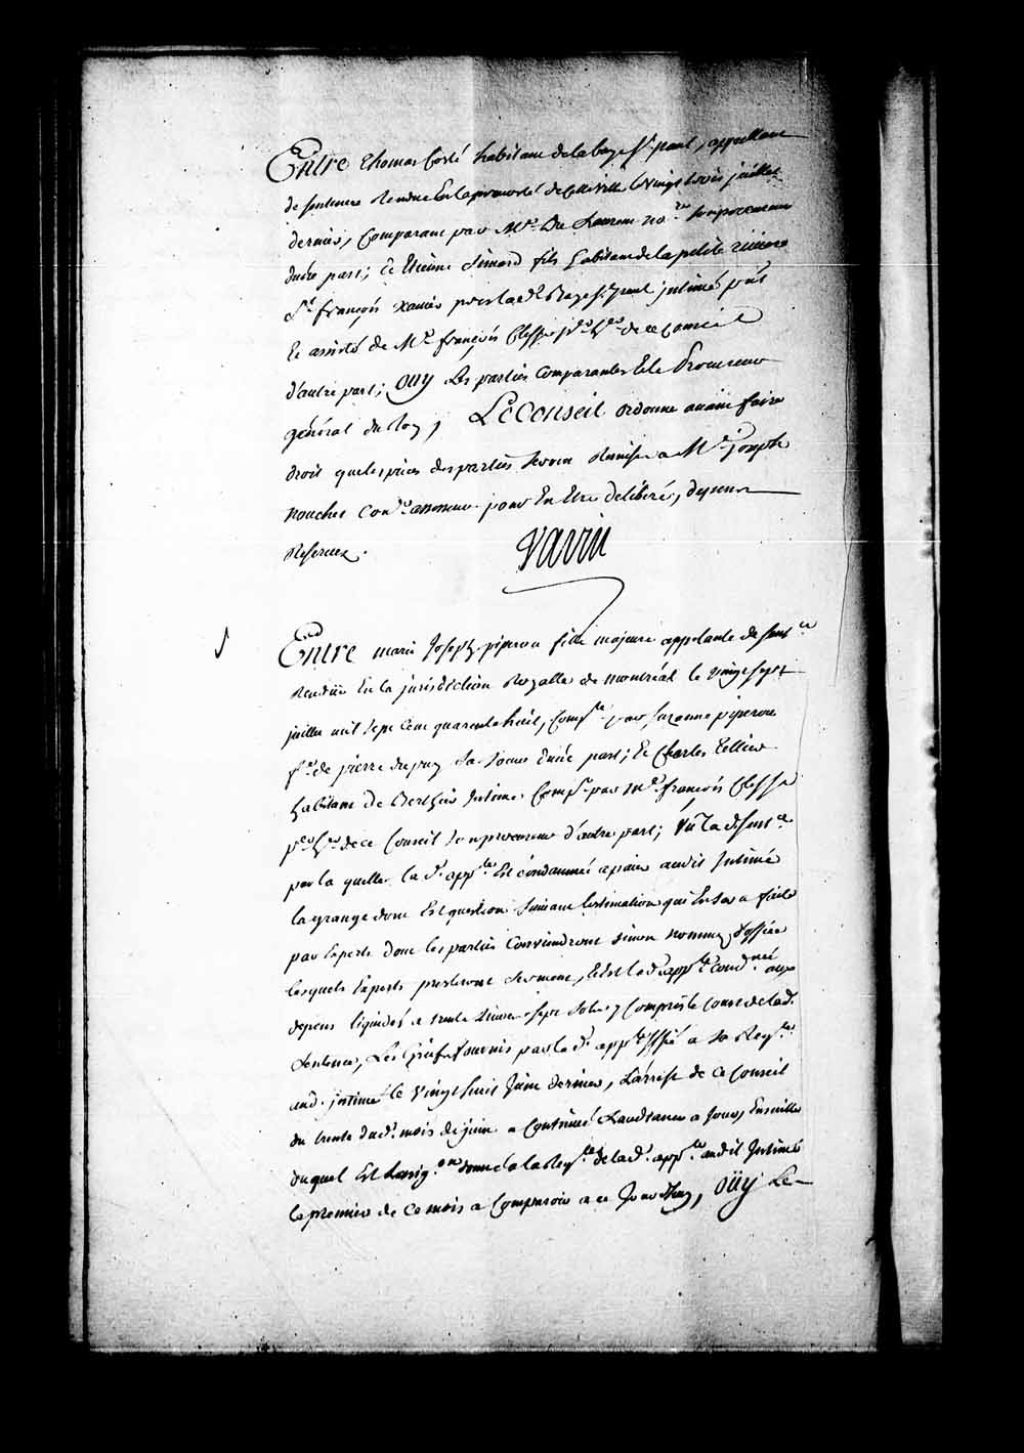 Entre thomas Coté habitant de la baye St. paul, appellant
de sentence Rendue En la prevosté de cette ville le vingt trois juillet
dernier, Comparant par Me. Du Laurent no.re son procureur
d'une part; Et Etienne Simard fils habitant de la petite riviere
St. françois Xavier prés lad.e Baye St. paul intimé pnt
Et assisté de Me. françois Clesse de ce Conseil
d'autre part; Ouy Les parties comparantes Et le Procureur
général du Roy, Le Conseil ordonne avant faire
droit que les pieces des parties seront Remises a Me. Joseph
nouchet Con.er assesseur pour En Etre deliberé, depens
Reservez.
Varin
Entre marie Joseph piperon fille majeure appelante de sent.ce
Rendüe En la jurisdiction Royalle de montréal le vingt sept
juillet mil sept cent quarante huit, Comp.te par suzanne piperon
fe. de pierre dupuy sa soeur d'une part; Et Charles Tellier
habitant de Berthier Intimé Comp.t par Me. françois Clesse
de ce Conseil son procureur d'autre part; Vû Lad. sent.ce
par la quelle la d. app.te Est condamnée a païer aud it Intimé
la grange dont Est question suivant l'estimation qui En sera faite
par Experts dont les parties Conviendront sinon nommez d'office
lesquels Experts presteront serment, Et Est lad. app.te cond.née aux
depens liquidés a trente livres sept sols y Compris le Coust de lad.
sentence, Les Griefs fournis par lad. app.te a sa Req.te
aud. intimé le vingt huit Juin dernier, L'arrest de ce Conseil
du trente dud. mois de juin a Ensuitte
duquel Est L'assig.on donnée a la Req.te de lad. app.te aud it Intimé
le premier de ce mois a Comparoir a ce Jourdhuy, Oüy Le